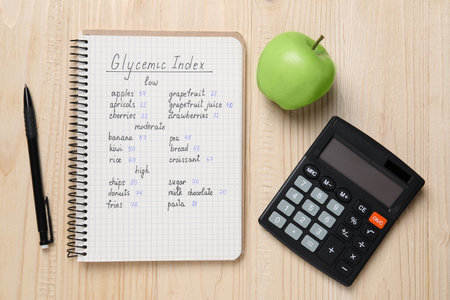 Glycemic Index
low
apples 38 grapefruit 22
apricots 22 grapefruit juice 48
cherries 22 strawberries 32
moderate
banana 57 pea 48
kiwi 50 bread 68
rice 60 croissant 67
high
chips 80 sugar 70
donuts 76 milk chocolate 70
fries 75 pasta
MRC M- M+
CE
ON/C
7 8 9
4 5 6
1 2 3
0